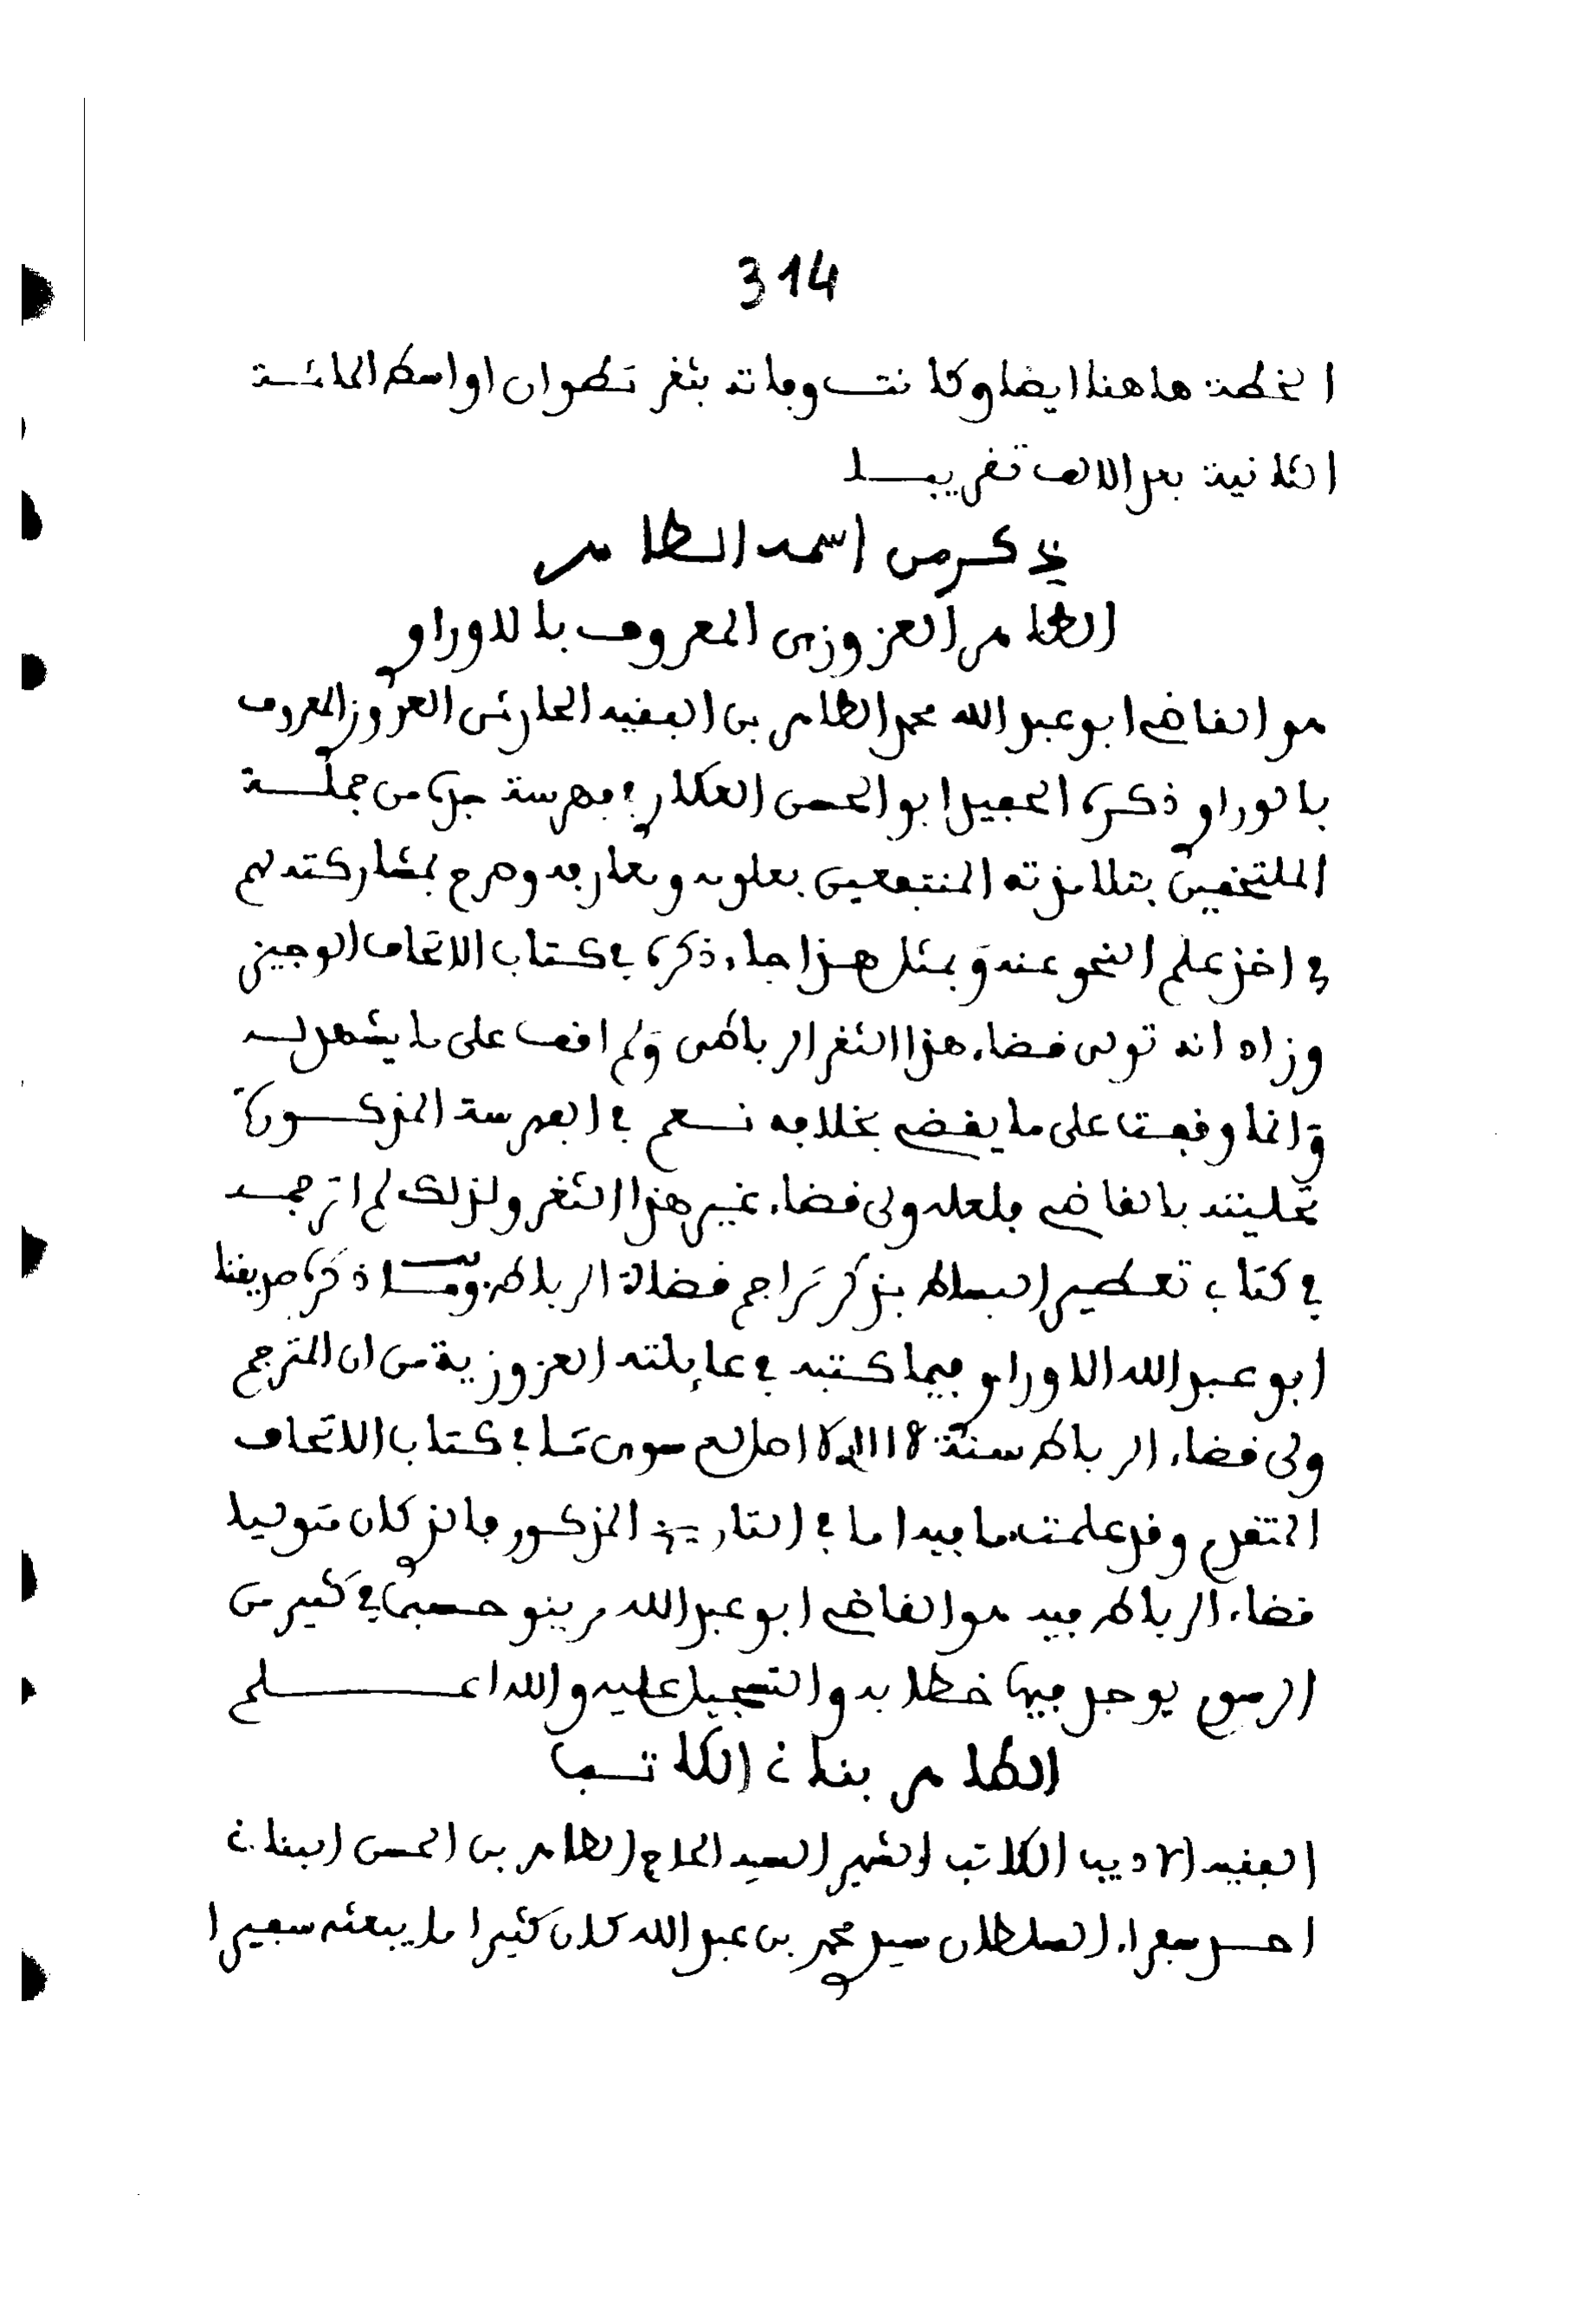 314
الخطة هاهنا ايضا وكانت وفاته بثغر تطوان اواسط المائة
الثانية بعد الالف تقريبا
ذكر من اسمه الطاهر
الطاهر العزوزي المعروف بالاوراوي
هو القاضي ابو عبد الله محمد الطاهر بن الفقيه الحارثي العزوزي المعروف
بالوراوي ذكره الحفيد ابو الحسن العكاري في فهرسة جده من جملة
الملتحقين بتلامذته المنتفعين بعلومه ومعارفه وصرح بمشاركته لهم
في اخذ علم النحو عنه وبمثل هذا جاء ذكره في كتاب الاتحاف الوجيز
وزاد انه تولى قضاء هذا الثغر الرباطي ولم اقف على ما يشهد له
وانما وقفت على ما يقضي بخلافه نعم في الفهرسة المذكورة
تحليته بالقاضي فلعله ولي قضاء غير هذا الثغر ولذلك لم اترجمه
في كتاب تعطير البساط بذكر تراجم قضاة الرباط وما ذكره صديقنا
ابو عبد الله الاوراوي فيما كتبه في عايلته العزوزية من ان المترجم
ولي قضاء الرباط سنة 1118 لا اصل له سوى ما في كتاب الاتحاف
المتقدم وقد علمت ما فيه اما في التاريخ المذكور فالذي كان متوليا
قضاء الرباط فيه هو القاضي ابو عبد الله مرينو حسبما في كثير من
الرسوم يوجد فيها خطابه والتسجيل عليه والله اعلم
الطاهر بناني الكاتب
الفقيه الاديب الكاتب الشهير السيد الحاج الطاهر بن الحسن البناني
احد سفراء السلطان سيدي محمد بن عبد الله كان كثيرا ما يبعثه سفيرا